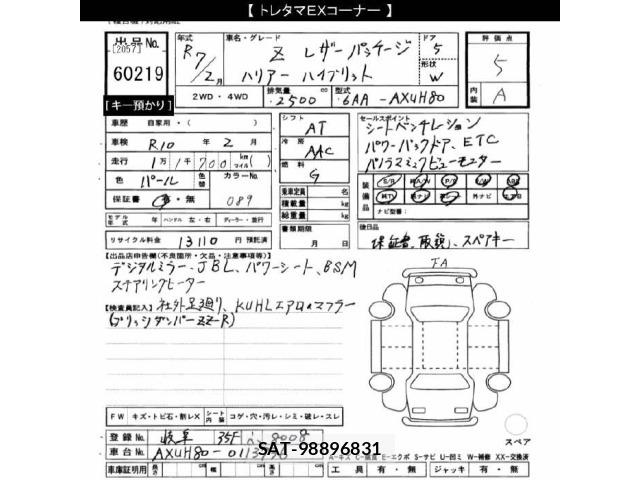 【 トレタマEXコーナー 】
出品No.
[2057]
60219
[キー預かり]
年式 R7/2月
車名・グレード Z レザーパッケージ
ハリアー ハイブリット
ドア 5
形状 W
評価点 5
内装 A
2WD・4WD 排気量 2500 cc 型式 6AA-AXUH80
車歴 自家用・( )
車検 R10 年 2 月
走行 1万1千700 km マイル( )
色 パール 色替 カラーNo. 089
保証書 有・無
モデル年式 年 ハンドル 左・右 ディーラー・並行
リサイクル料金 13110 円 預託済
シフト AT
冷房 AAC
燃料 G
乗車定員 名
積載量 kg
総重量 kg
書類期限
月 日
セールスポイント
シートベンチレーション
パワーバックドア、ETC
パノラミックビューモニター
装備品 S/R 純A/W P/S P/W
純TV 純ナビ 外ナビ
ナビ型番:
後日品
保証書、取説、スペアキー
【出品店申告欄(不良箇所・欠品・注意事項等)】
デジタルミラー、JBL、パワーシート、BSM
ステアリングヒーター
【検査員記入】社外足廻り、KUHLエアロ&マフラー
(ブリッツダンパーZZ-R)
FA
FW キズ・トビ石・割レX シート内装 コゲ・穴・汚レ・シミ・破レ・スレ
スペア
登録No. 岐阜
車台No. AXUH80-
SAT-98896831
車庫証明用 長さ 幅 高さ
工具 有・無 ジャッキ 有・無